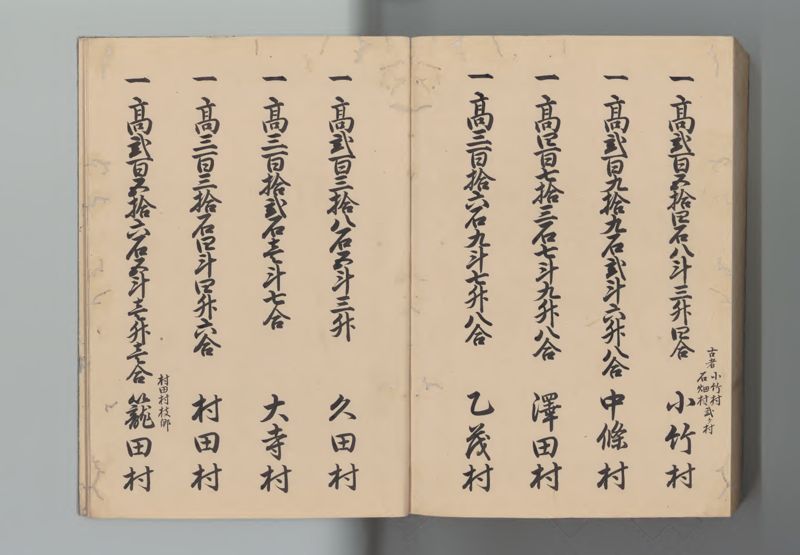 一高弐百五拾四石八斗三升四合 小竹村
古者小竹村
石畑村弐ヶ村
一高弐百九拾九石弐斗六升八合 中條村
一高四百七拾三石七斗九升八合 澤田村
一高三百拾六石九斗七升八合 乙茂村
一高弐百三拾八石五斗三升 久田村
一高三百拾弐石壱斗七合 大寺村
一高三百三拾石四斗四升六合 村田村
村田村枝郷
一高弐百五拾六石五斗壱升壱合 籠田村